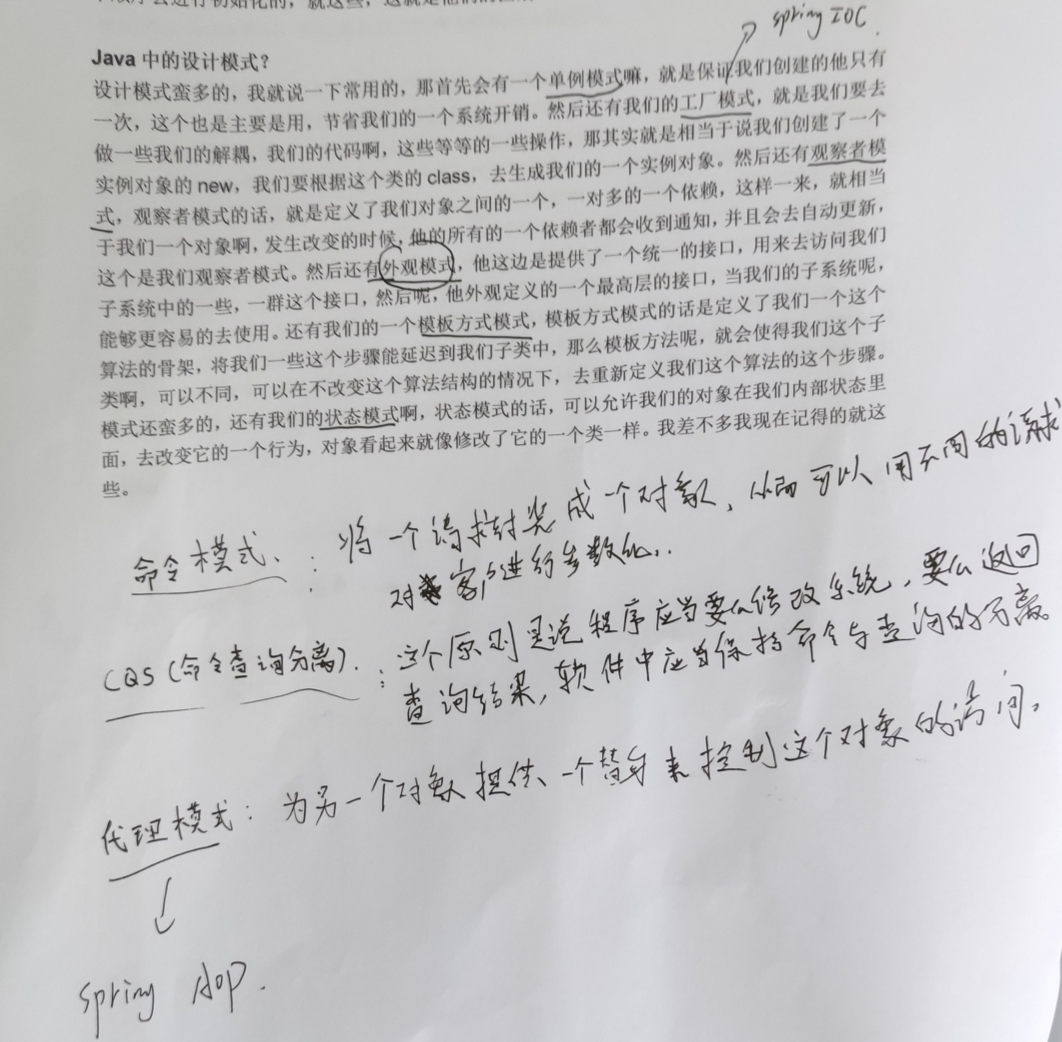 spring IOC.
Java 中的设计模式？
设计模式蛮多的，我就说一下常用的，那首先会有一个单例模式嘛，就是保证我们创建的他只有
一次，这个也是主要是用，节省我们的一个系统开销。然后还有我们的工厂模式，就是我们要去
做一些我们的解耦，我们的代码啊，这些等等的一些操作，那其实就是相当于说我们创建了一个
实例对象的 new，我们要根据这个类的 class，去生成我们的一个实例对象。然后还有观察者模
式，观察者模式的话，就是定义了我们对象之间的一个，一对多的一个依赖，这样一来，就相当
于我们一个对象啊，发生改变的时候，他的所有的一个依赖者都会收到通知，并且会去自动更新，
这个是我们观察者模式。然后还有外观模式，他这边是提供了一个统一的接口，用来去访问我们
子系统中的一些，一群这个接口，然后呢，他外观定义的一个最高层的接口，当我们的子系统呢，
能够更容易的去使用。还有我们的一个模板方式模式，模板方式模式的话是定义了我们一个这个
算法的骨架，将我们一些这个步骤能延迟到我们子类中，那么模板方法呢，就会使得我们这个子
类啊，可以不同，可以在不改变这个算法结构的情况下，去重新定义我们这个算法的这个步骤。
模式还蛮多的，还有我们的状态模式啊，状态模式的话，可以允许我们的对象在我们内部状态里
面，去改变它的一个行为，对象看起来就像修改了它的一个类一样。我差不多我现在记得的就这
些。
命令模式：将一个请求封装成一个对象，从而可以用不同的请求
对客户进行参数化..
CQS（命令查询分离）：这个原则是说程序应当要么修改系统，要么返回
查询结果，软件中应当保持命令与查询的分离。
代理模式：为另一个对象提供一个替身来控制这个对象的访问。
spring AOP.